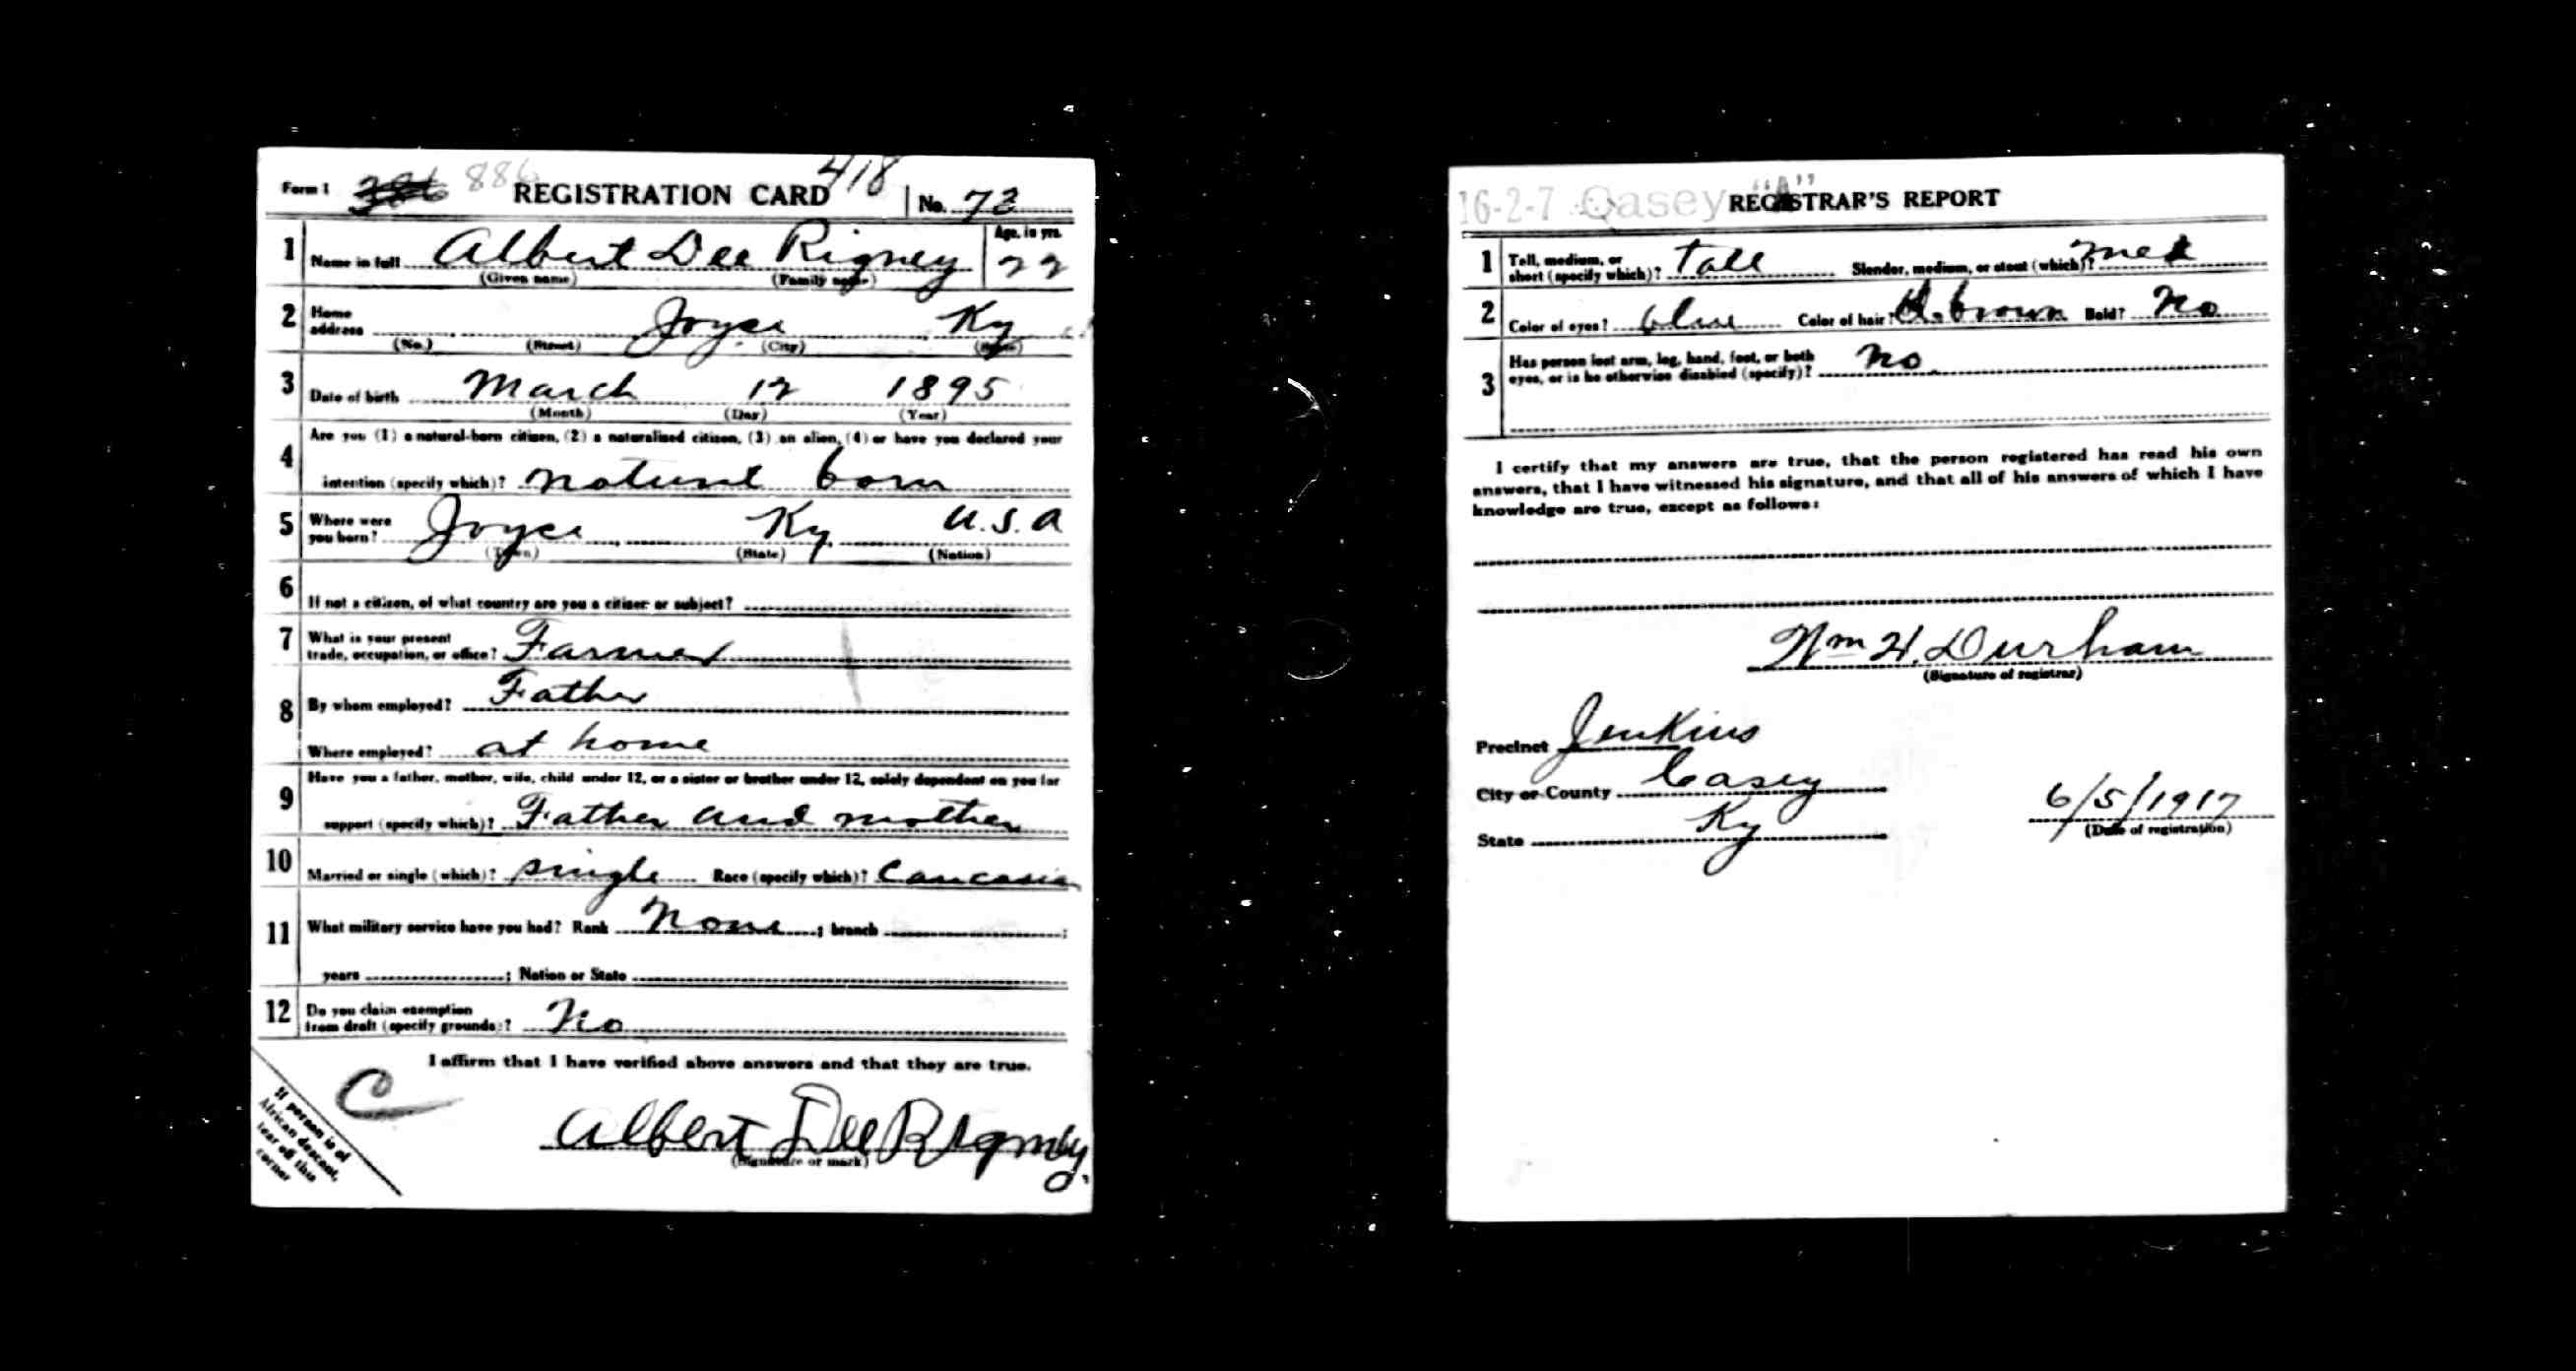 Form 1 886 REGISTRATION CARD 418 No. 73
1 Name in full Albert Dee Rigney Age, in yrs. 22
(Given name) (Family name)
2 Home address Joyce Ky
(No.) (Street) (City) (State)
3 Date of birth March 12 1895
(Month) (Day) (Year)
4 Are you (1) a natural-born citizen, (2) a naturalized citizen, (3) an alien, (4) or have you declared your
intention (specify which)? natural born
5 Where were you born? Joyce Ky U.S.A
(Town) (State) (Nation)
6 If not a citizen, of what country are you a citizen or subject?
7 What is your present trade, occupation, or office? Farmer
8 By whom employed? Father
Where employed? at home
9 Have you a father, mother, wife, child under 12, or a sister or brother under 12, solely dependent on you for
support (specify which)? Father and mother
10 Married or single (which)? single Race (specify which)? Caucasian
11 What military service have you had? Rank None ; branch ;
years ; Nation or State
12 Do you claim exemption from draft (specify grounds)? No
I affirm that I have verified above answers and that they are true.
C
Albert Dee Rigney.
(Signature or mark)
If person is of
African descent,
tear off this
corner
16-2-7 Casey "A" REGISTRAR'S REPORT
1 Tall, medium, or short (specify which)? Tall Slender, medium, or stout (which)? med
2 Color of eyes? blue Color of hair? brown Bald? No
3 Has person lost arm, leg, hand, foot, or both eyes, or is he otherwise disabled (specify)? No
I certify that my answers are true, that the person registered has read his own
answers, that I have witnessed his signature, and that all of his answers of which I have
knowledge are true, except as follows:
Wm H. Durham
(Signature of registrar)
Precinct Jenkins
City or County Casey
State Ky
6/5/1917
(Date of registration)